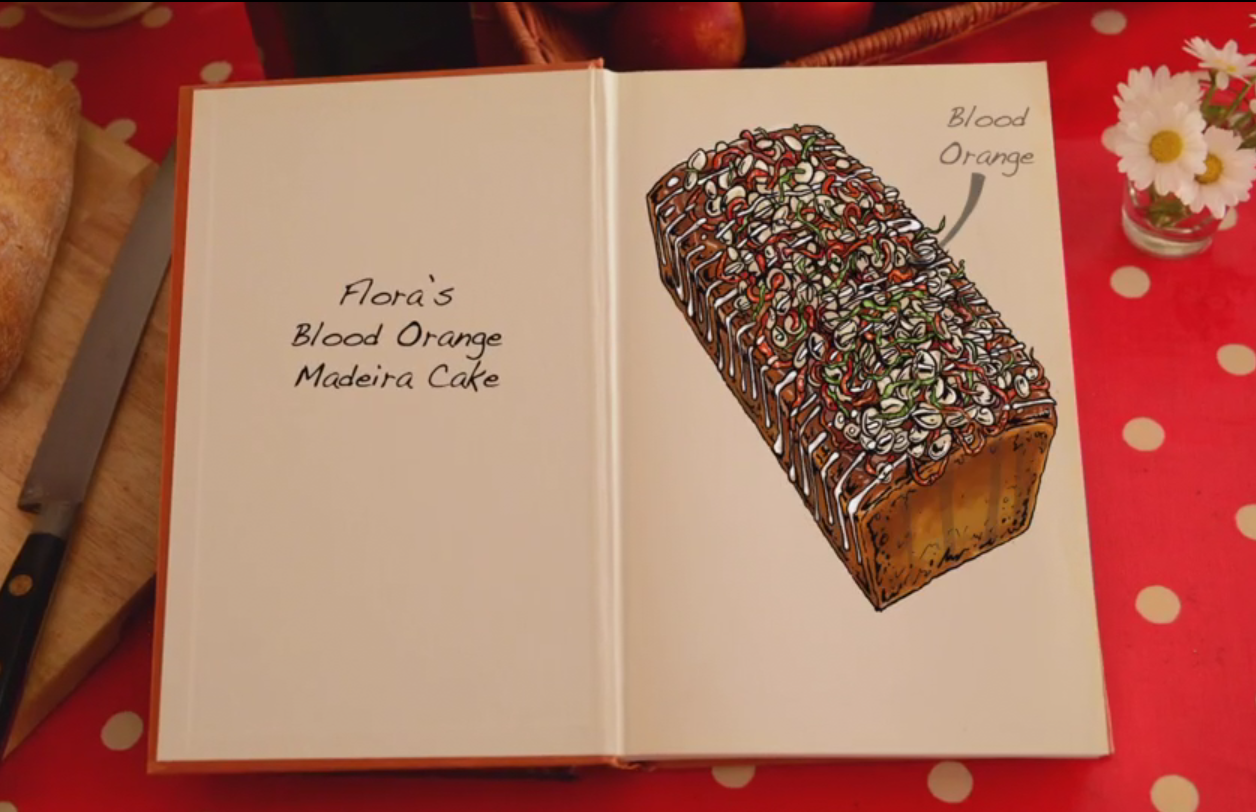 Flora's
Blood Orange
Madeira Cake
Blood
Orange